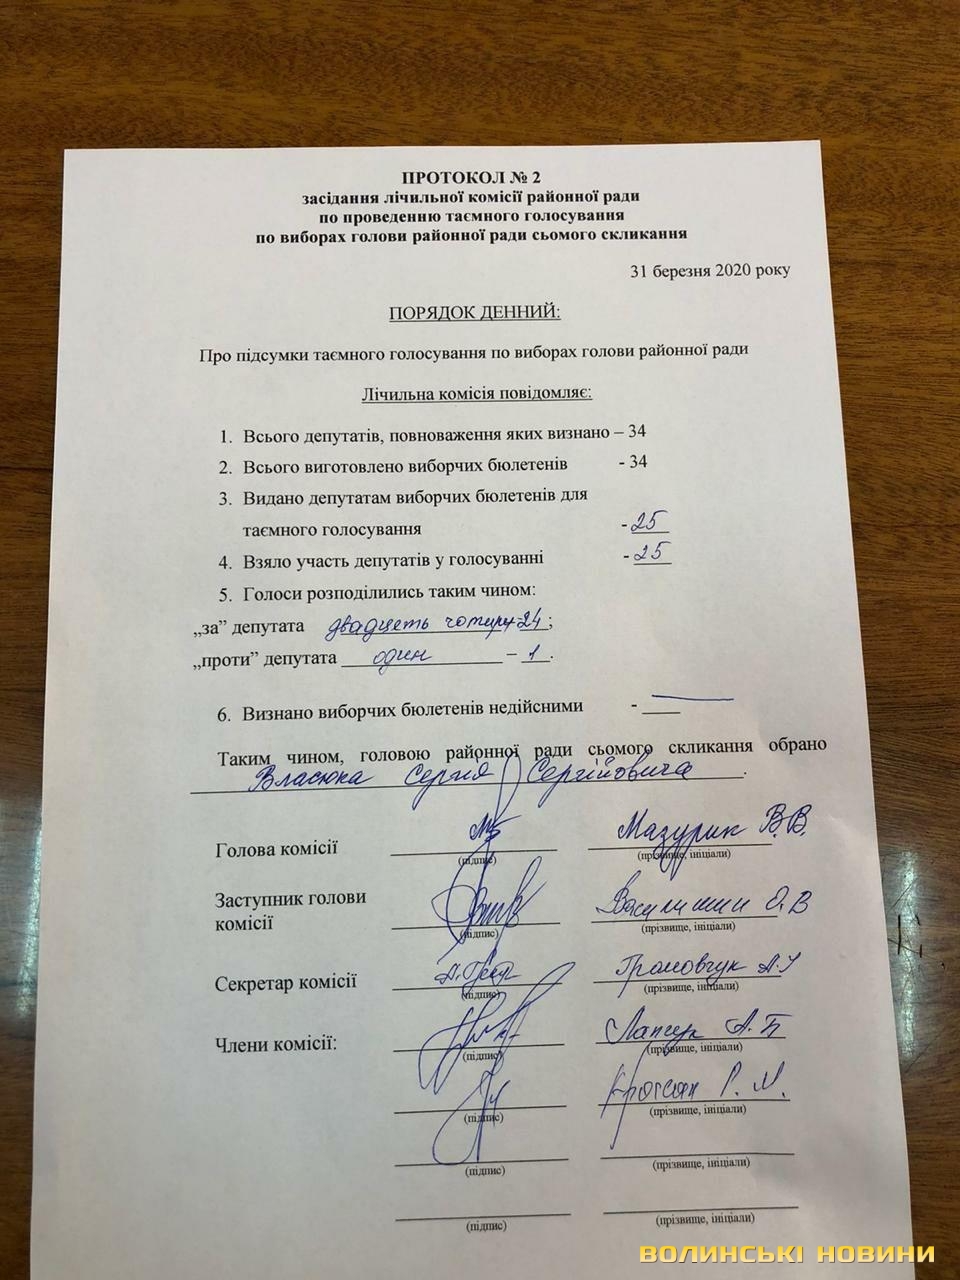 ПРОТОКОЛ № 2
засідання лічильної комісії районної ради
по проведенню таємного голосування
по виборах голови районної ради сьомого скликання
31 березня 2020 року
ПОРЯДОК ДЕННИЙ:
Про підсумки таємного голосування по виборах голови районної ради
Лічильна комісія повідомляє:
1. Всього депутатів, повноваження яких визнано – 34
2. Всього виготовлено виборчих бюлетенів - 34
3. Видано депутатам виборчих бюлетенів для
таємного голосування - 25
4. Взяло участь депутатів у голосуванні - 25
5. Голоси розподілились таким чином:
„за” депутата двадцять чотири - 24;
„проти” депутата один – 1.
6. Визнано виборчих бюлетенів недійсними - ____
Таким чином, головою районної ради сьомого скликання обрано
Власюка Сергія Сергійовича.
Голова комісії Мазурик В.В.
(підпис) (прізвище, ініціали)
Заступник голови
комісії О.В
(підпис) (прізвище, ініціали)
Секретар комісії Громовчук А.І
(підпис) (прізвище, ініціали)
Члени комісії: А.Б
(підпис) (прізвище, ініціали)
Р. М.
(підпис) (прізвище, ініціали)
(підпис) (прізвище, ініціали)
(підпис) (прізвище, ініціали)
ВОЛИНСЬКІ НОВИНИ